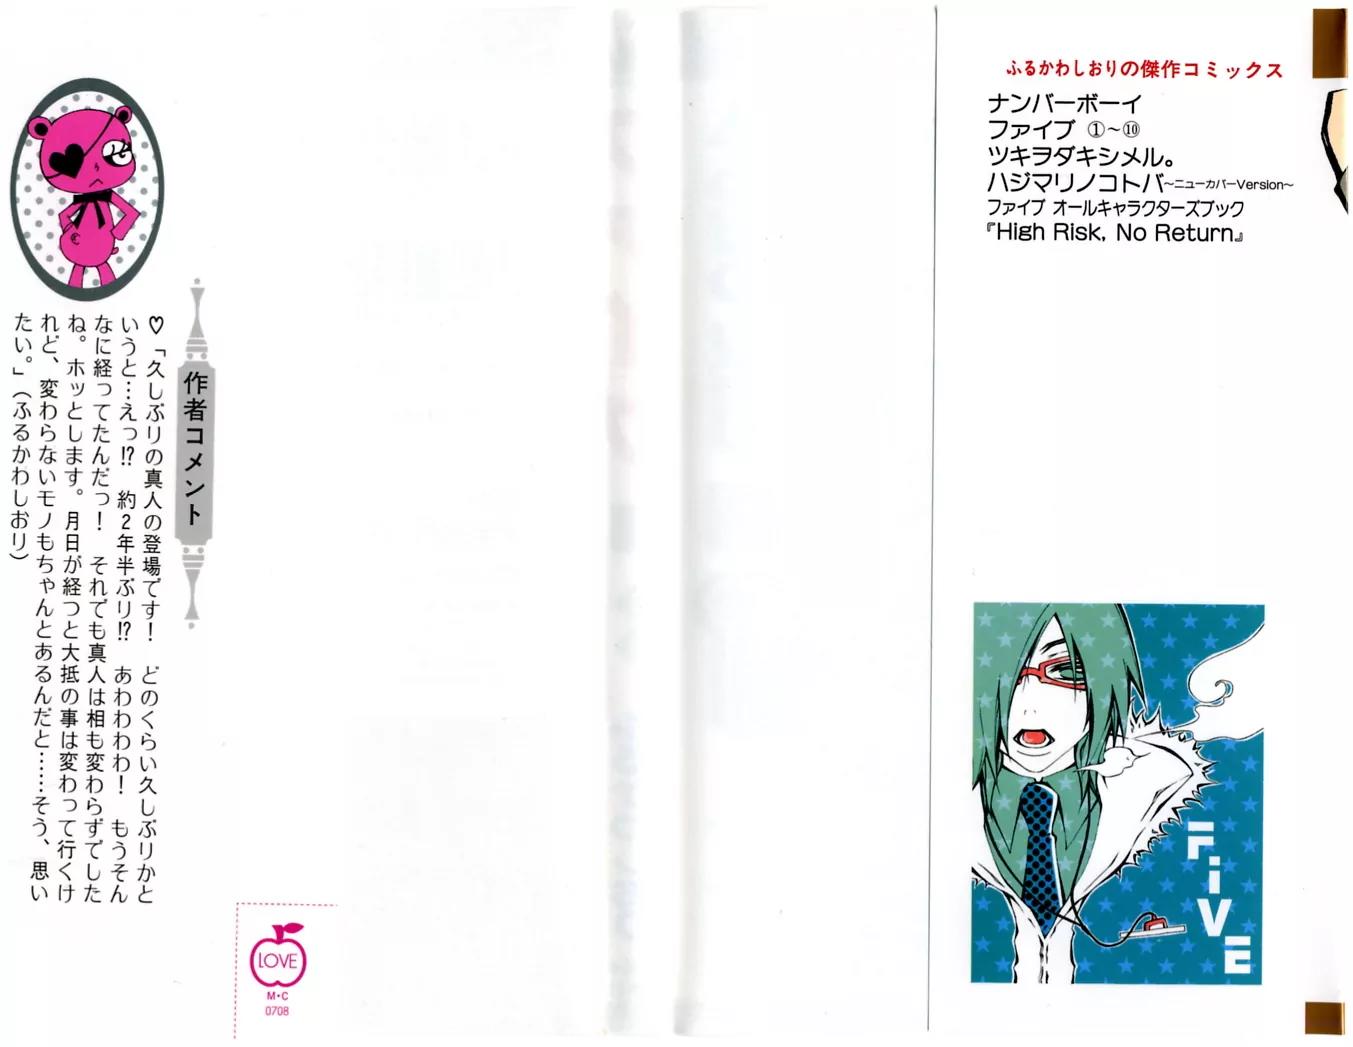 ふるかわしおりの傑作コミックス
ナンバーボーイ
ファイブ ①〜⑩
ツキヲダキシメル。
ハジマリノコトバ〜ニューカバーVersion〜
ファイブ オールキャラクターズブック
『High Risk, No Return』
FiVE
作者コメント
♡「久しぶりの真人の登場です！　どのくらい久しぶりかと
いうと…えっ!?　約2年半ぶり!?　あわわわわ！　もうそん
なに経ってたんだっ！　それでも真人は相も変わらずでした
ね。ホッとします。月日が経つと大抵の事は変わって行くけ
れど、変わらないモノもちゃんとあるんだと……そう、思い
たい。」（ふるかわしおり）
LOVE
M・C
0708